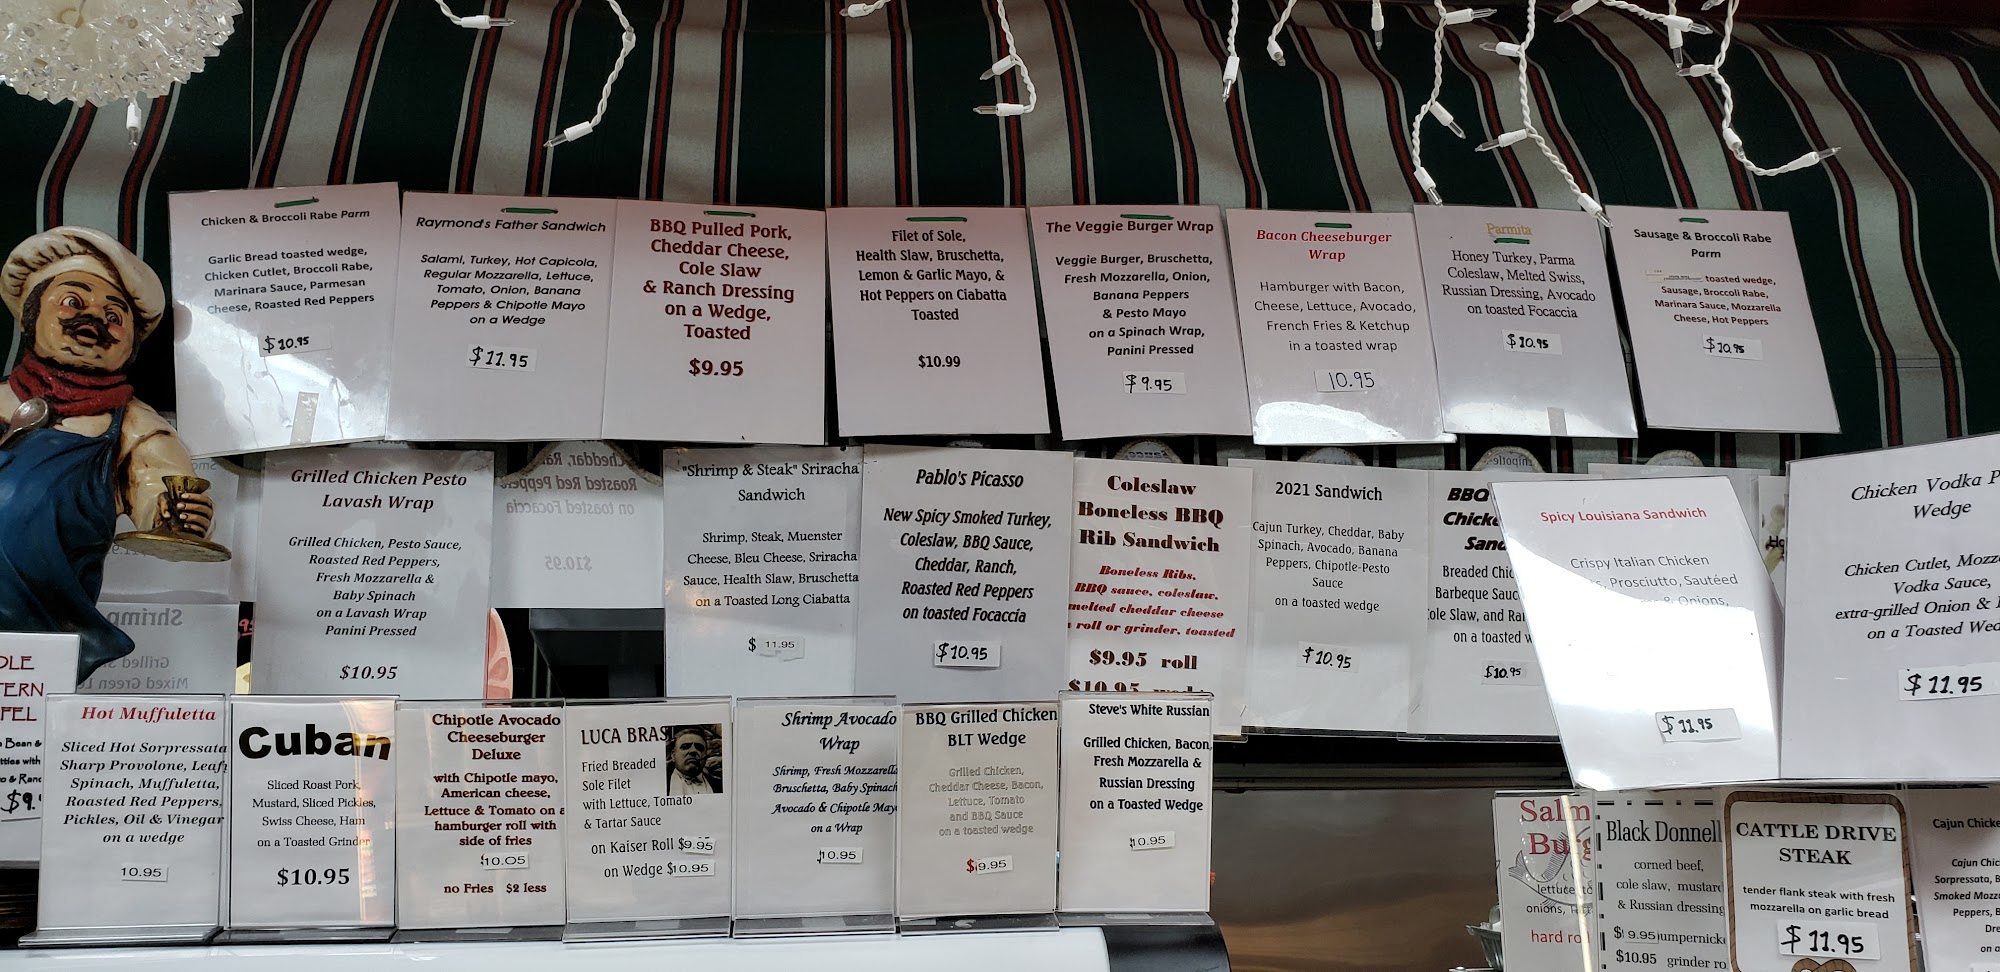 Chicken & Broccoli Rabe Parm
Garlic Bread toasted wedge,
Chicken Cutlet, Broccoli Rabe,
Marinara Sauce, Parmesan
Cheese, Roasted Red Peppers
$10.95
Raymond's Father Sandwich
Salami, Turkey, Hot Capicola,
Regular Mozzarella, Lettuce,
Tomato, Onion, Banana
Peppers & Chipotle Mayo
on a Wedge
$11.95
BBQ Pulled Pork,
Cheddar Cheese,
Cole Slaw
& Ranch Dressing
on a Wedge,
Toasted
$9.95
Filet of Sole,
Health Slaw, Bruschetta,
Lemon & Garlic Mayo, &
Hot Peppers on Ciabatta
Toasted
$10.99
The Veggie Burger Wrap
Veggie Burger, Bruschetta,
Fresh Mozzarella, Onion,
Banana Peppers
& Pesto Mayo
on a Spinach Wrap,
Panini Pressed
$9.95
Bacon Cheeseburger
Wrap
Hamburger with Bacon,
Cheese, Lettuce, Avocado,
French Fries & Ketchup
in a toasted wrap
10.95
Parmita
Honey Turkey, Parma
Coleslaw, Melted Swiss,
Russian Dressing, Avocado
on toasted Focaccia
$10.95
Sausage & Broccoli Rabe
Parm
toasted wedge,
Sausage, Broccoli Rabe,
Marinara Sauce, Mozzarella
Cheese, Hot Peppers
$10.95
Grilled Chicken Pesto
Lavash Wrap
Grilled Chicken, Pesto Sauce,
Roasted Red Peppers,
Fresh Mozzarella &
Baby Spinach
on a Lavash Wrap
Panini Pressed
$10.95
Cheddar, Ra
Roasted Red Peppe
on toasted Focaccia
$10.95
"Shrimp & Steak" Sriracha
Sandwich
Shrimp, Steak, Muenster
Cheese, Bleu Cheese, Sriracha
Sauce, Health Slaw, Bruschetta
on a Toasted Long Ciabatta
$ 11.95
Pablo's Picasso
New Spicy Smoked Turkey,
Coleslaw, BBQ Sauce,
Cheddar, Ranch,
Roasted Red Peppers
on toasted Focaccia
$10.95
Coleslaw
Boneless BBQ
Rib Sandwich
Boneless Ribs,
BBQ sauce, coleslaw,
melted cheddar cheese
roll or grinder, toasted
$9.95 roll
$10.95
2021 Sandwich
Cajun Turkey, Cheddar, Baby
Spinach, Avocado, Banana
Peppers, Chipotle-Pesto
Sauce
on a toasted wedge
$10.95
BBQ
Chicke
Sand
Breaded Chic
Barbeque Sauc
ole Slaw, and Ra
on a toasted w
$10.95
Spicy Louisiana Sandwich
Crispy Italian Chicken
Prosciutto, Sautéed
& Onions,
$11.95
Chicken Vodka P
Wedge
Chicken Cutlet, Mozz
Vodka Sauce,
extra-grilled Onion &
on a Toasted Wed
$11.95
Shrimp
Grilled
Mixed Green
OLE
TERN
FEL
Bean &
tties with
o & Ranc
$9.
Hot Muffuletta
Sliced Hot Sorpressata
Sharp Provolone, Leaf
Spinach, Muffuletta,
Roasted Red Peppers,
Pickles, Oil & Vinegar
on a wedge
10.95
Cuban
Sliced Roast Pork,
Mustard, Sliced Pickles,
Swiss Cheese, Ham
on a Toasted Grinder
$10.95
Chipotle Avocado
Cheeseburger
Deluxe
with Chipotle mayo,
American cheese,
Lettuce & Tomato on a
hamburger roll with
side of fries
$10.05
no Fries $2 less
LUCA BRAS
Fried Breaded
Sole Filet
with Lettuce, Tomato
& Tartar Sauce
on Kaiser Roll $9.95
on Wedge $10.95
Shrimp Avocado
Wrap
Shrimp, Fresh Mozzarella
Bruschetta, Baby Spinach
Avocado & Chipotle May
on a Wrap
10.95
BBQ Grilled Chicken
BLT Wedge
Grilled Chicken,
Cheddar Cheese, Bacon,
Lettuce, Tomato
and BBQ Sauce
on a toasted wedge
$9.95
Steve's White Russian
Grilled Chicken, Bacon,
Fresh Mozzarella &
Russian Dressing
on a Toasted Wedge
10.95
Salm
Burg
lettuce to
onions,
hard ro
Black Donnell
corned beef,
cole slaw, mustard
& Russian dressing
$9.95 pumpernick
$10.95 grinder ro
CATTLE DRIVE
STEAK
tender flank steak with fresh
mozzarella on garlic bread
$11.95
Cajun Chicke
Cajun Chic
Sorpressata, B
Smoked Mozz
Peppers, B
Dre
on a